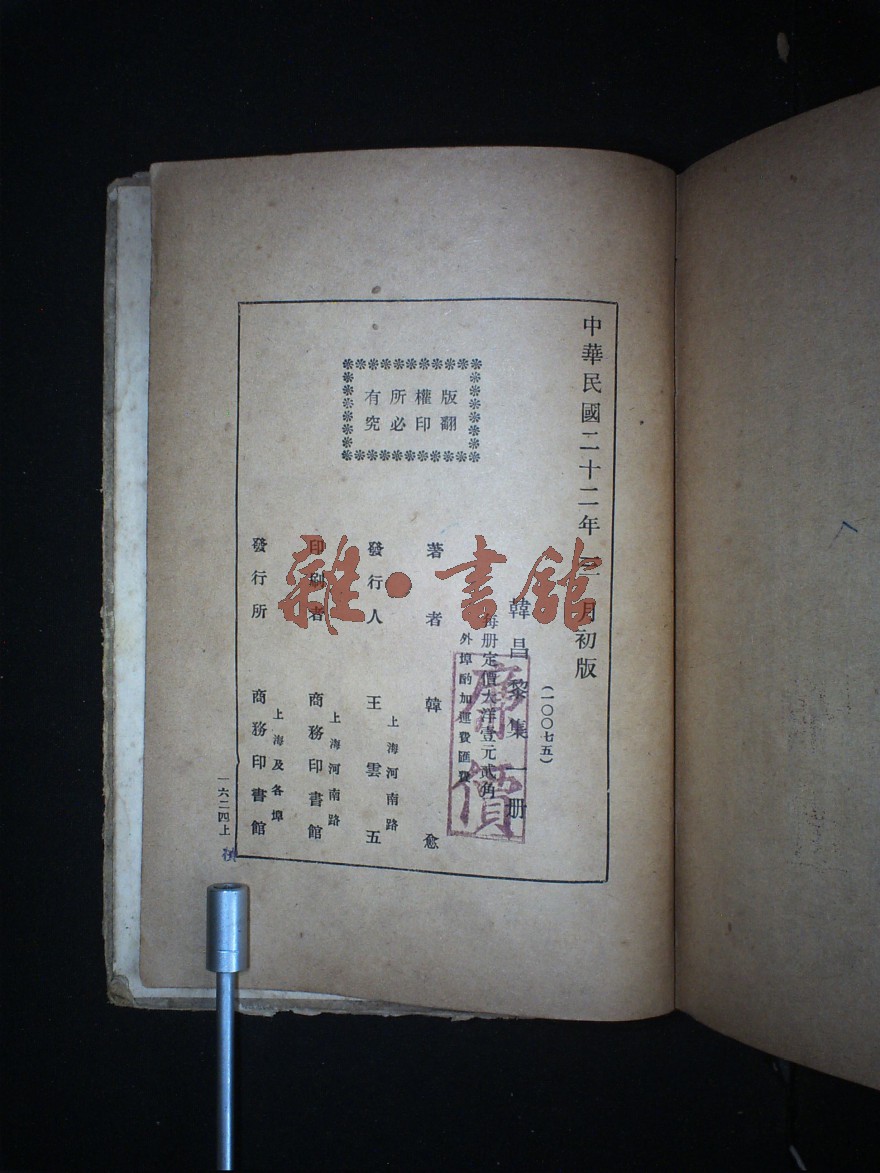 中華民國二十二年三月初版
(一〇〇七五)
韓昌黎集一册
每册定價大洋壹元貳角
外埠酌加運費匯費
廉價
版權所有
翻印必究
著者 韓愈
上海河南路
發行人 王雲五
上海河南路
印刷者 商務印書館
上海及各埠
發行所 商務印書館
一六二四上
雜·書館